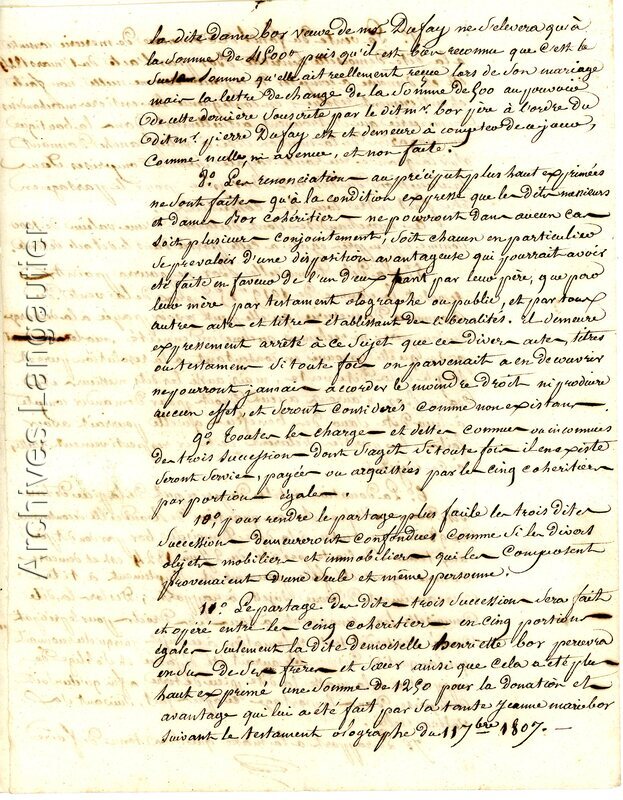 la dite dame bor veuve de mr Dufay ne s'elevera qu'à
la somme de 4500# puis qu'il est bien reconnu que c'est la
somme qu'elle ait reellement reçue lors de son mariage
mais la lettre de change de la somme de 500 au pouvoir
de cette derniere souscrite par le dit mr. bor père à l'ordre du
dit mr. pierre Dufay est et demeure à compter de ce jour,
comme nulle, ni avenue, et non faite.
8o. Les renonciation au préciput plus haut exprimées
ne sont faites qu'à la condition expresse que les dits messieurs
et dames Bor cohéritiers ne pourront dans aucun cas
soit plusieurs conjointement, soit chacun en particulier
se prevaloir d'une disposition avantageuse qui pourrait avoir
été faite en faveur de l'un d'eux tant par leur père, que par
leur mère par testament olographe ou public, et par tous
autres actes et titres établissant des liberalités. Il demeure
expressement arreté à ce sujet que ces divers actes, titres
ou testamens si toute fois on parvenait a en decouvrir
ne pourront jamais accorder le moindre droit ni produire
aucun effet, et seront considerés comme non existans
9o. Toutes les charges et dettes connues ou inconnues
des trois succession dont s'agit si toute fois il en existe
seront servies, payées ou acquittées par les cinq coheritiers
par portions égales.
10o. pour rendre le partage plus facile les trois dites
succession demeureront confondues comme si les divers
objets mobiliers et immobiliers qui les composent
provenaient d'une seule et même personne.
11o. Le partage des dites trois succession sera fait
et opéré entre les cinq coheritiers en cinq portions
égales seulement la dite demoiselle henriette bor percevra
en sus de ses frères et sœur ainsi que cela a été plus
haut exprimé une somme de 1250 pour la donation et
avantage qui lui a été fait par sa tante jeanne marie bor
suivant le testament olographe du 11 7bre 1807.
Archives J-Langautier